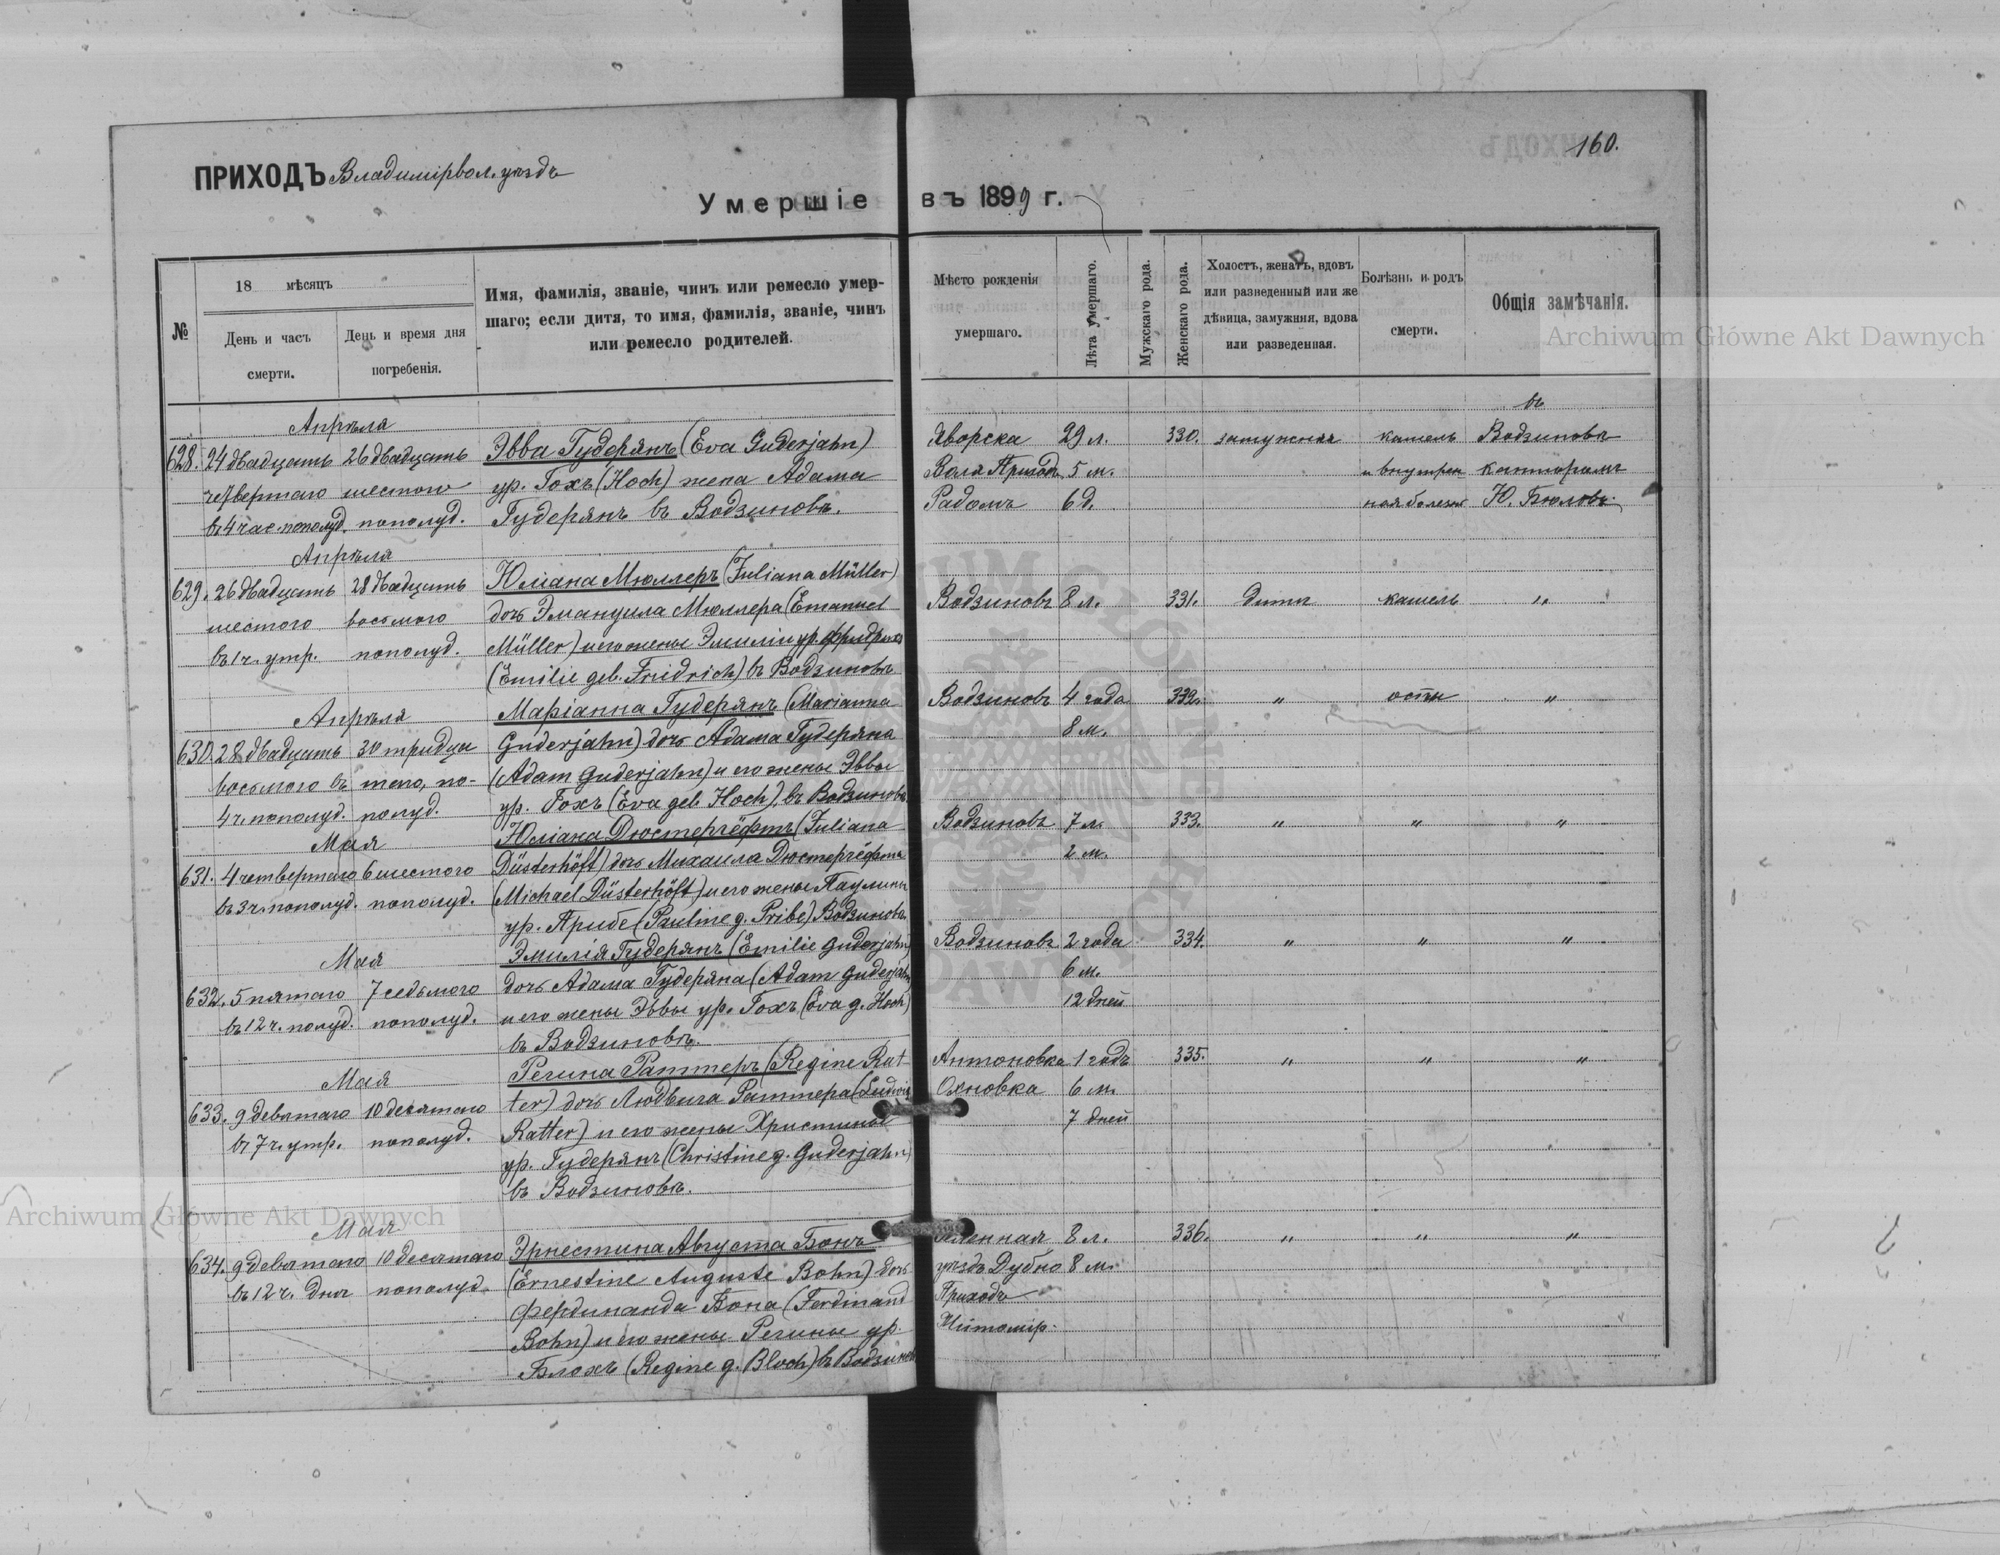 160.
ПРИХОДЪ Владимірвол. уѣздъ
Умершіе въ 1899 г.
№
18 мѣсяцъ
День и часъ смерти.
День и время дня погребенія.
Имя, фамилія, званіе, чинъ или ремесло умер-
шаго; если дитя, то имя, фамилія, званіе, чинъ
или ремесло родителей.
Мѣсто рожденія умершаго.
Лѣта умершаго.
Мужскаго рода.
Женскаго рода.
Холостъ, женатъ, вдовъ
или разведенный или же
дѣвица, замужняя, вдова
или разведенная.
Болѣзнь и родъ смерти.
Общія замѣчанія.
Archiwum Główne Akt Dawnych
Апрѣля въ
628. 24 двадцать 26 двадцать Эвва Гудерянъ (Eva Guderjahn) Яворска 29 л. 330. замужняя кашель Водзиновѣ
четвертаго шестого ур. Гохъ (Hoch) жена Адама Воля Приходъ 5 м. и внутрен канторомъ
въ 4 час. пополуд. пополуд. Гудерянъ въ Водзиновѣ. Радомъ 6 д. ная болезнь Ю. Бюловъ.
Апрѣля
629. 26 двадцать 28 двадцать Юліана Мюллеръ (Juliana Müller) Водзиновъ 8 л. 331. дитя кашель "
шестого восьмого дочь Эмануила Мюллера (Emanuel
въ 1 ч. утр. пополуд. Müller) и его жены Эмиліи ур. Фридрихъ
(Emilie geb. Friedrich) въ Водзиновѣ
Апрѣля Маріанна Гудерянъ (Marianna Водзиновъ 4 года 332. " оспы "
630. 28 двадцать 30 тридца Guderjahn) дочь Адама Гудеряна 8 м.
восьмого въ того, по- (Adam Guderjahn) и его жены Эввы
4 ч. пополуд. полуд. ур. Гохъ (Eva geb. Hoch), въ Водзиновѣ
Мая Юліана Дюстергёфтъ (Juliana Водзиновъ 7 л. 333. " " "
631. 4 четвертаго 6 шестого Düsterhöft) дочь Михаила Дюстергёфта 2 м.
въ 3 ч. пополуд. пополуд. (Michael Düsterhöft) и его жены Паулины
ур. Прибе (Pauline g. Pribe) Водзиновѣ
Мая Эмилія Гудерянъ (Emilie Guderjahn) Водзиновъ 2 года 334. " " "
632. 5 пятаго 7 седьмого дочь Адама Гудеряна (Adam Guderjahn 6 м.
въ 12 ч. полуд. пополуд. и его жены Эввы ур. Гохъ (Eva g. Hoch) 12 дней
въ Водзиновѣ.
Мая Регина Раттеръ (Regine Rat- Антоновка 1 годъ 335. " " "
633. 9 девятаго 10 десятаго ter) дочь Людвига Раттера (Ludwig Охновка 6 м.
въ 7 ч. утр. пополуд. Ratter) и его жены Христины 7 дней
ур. Гудерянъ (Christine g. Guderjahn)
въ Водзиновѣ.
Archiwum Główne Akt Dawnych
Мая
634. 9 девятаго 10 десятаго Эрнестина Августа Бонъ 8 л. 336. " " "
въ 12 ч. дня пополуд. (Ernestine Auguste Bohn) дочь уѣздъ Дубно 8 м.
Фердинанда Бона (Ferdinand Приходъ
Bohn) и его жены Регины ур. Житомір.
Блохъ (Regine g. Bloch) въ Водзиновѣ